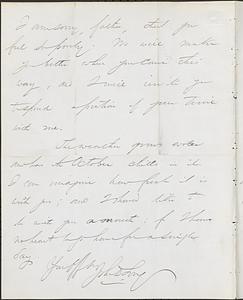 I am sorry, father, that you
feel so poorly; We will make
you better when you come this
way, and I will invite you
to spend a portion of your time
with me.
The weather grows cooler
and has the October chills in it.
I can imagine how fresh it is
with you; and I should like to
be with you a moment; for I have
no heart left home for a single
day.